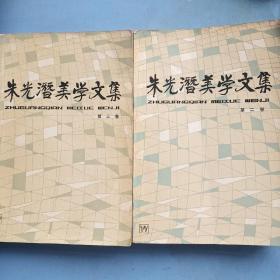 朱光潜美学文集
ZHUGUANGQIAN MEIXUE WENJI
朱光潜美学文集
ZHUGUANGQIAN MEIXUE WENJI
第二卷